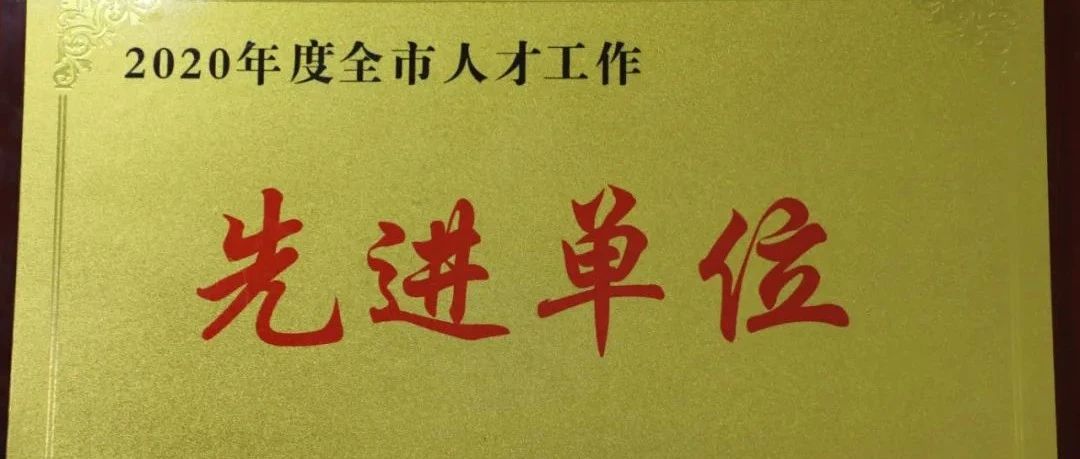 2020年度全市人才工作
先进单位